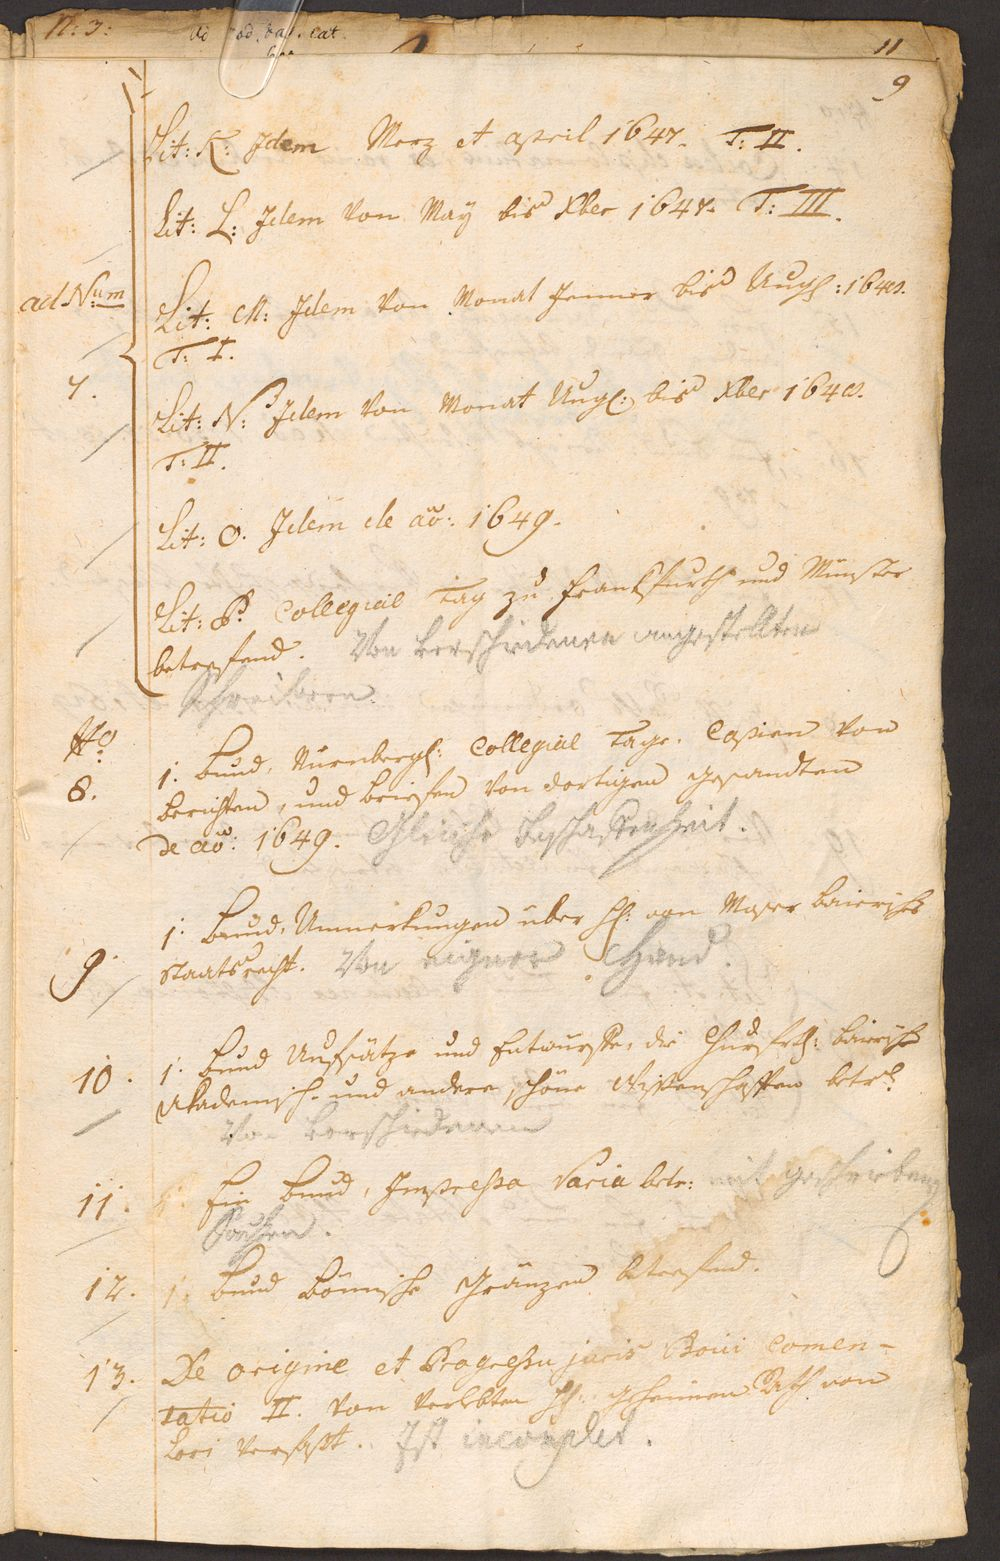 N: 3:
11
9
Lit: K: Idem Merz et april 1647. T: II.
Lit: L: Idem von May bis Xber 1647. T: III.
ad Num
7.
Lit: M: Idem von Monat Jenner bis Augs: 1648.
T: I.
Lit: N: Idem von Monat Augs: bis Xber 1648.
T: II.
Lit: O. Idem de aõ: 1649.
Lit: P. Collegial Tag zu Frankfurth und Münster
betreffend. Von verschiedenen angestellten
Schreibern.
No
8.
1. Bund, Nürnbergs: Collegial Tage. Copien von
berichten, und briefen von dortigen gesandten
de aõ: 1649. Gleiche Beschaffenheit.
9.
1. Bund, Anmerkungen über H: von Moser baierisches
Staatsrecht. Von eigner Hand.
10.
1. Bund Aufsätze und Entwürffe, die Churfrth: baierische
Akademisch- und andere schöne Wissenschafften betr.
Von verschiedenen
11.
Ein Bund, Impressa Varia betr: mit geschriebenen
Sachen.
12.
1. Bund Bömische Gränzen betreffend.
13.
De origine et Progressu juris Boici Comen-
tatio II. von verlebten H: geheimen Rath von
Lori verfasst. Ist incomplet.